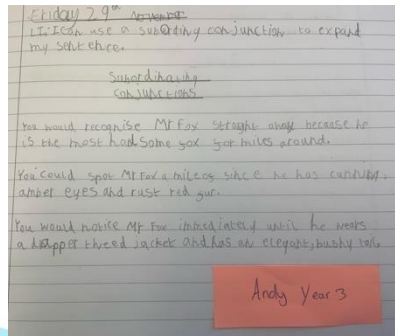 Friday 29th November
LI: I can use a subording conjunction to expand
my sentence.
Subordinating
conjunctions
You would recognise Mr Fox straight away because he
is the most handsome fox for miles around.
You could spot Mr Fox a mile off since he has cunning,
amber eyes and rust red fur.
You would notice Mr Fox immediately until he wears
a dapper tweed jacket and has an elegant, bushy tail.
Andy Year 3